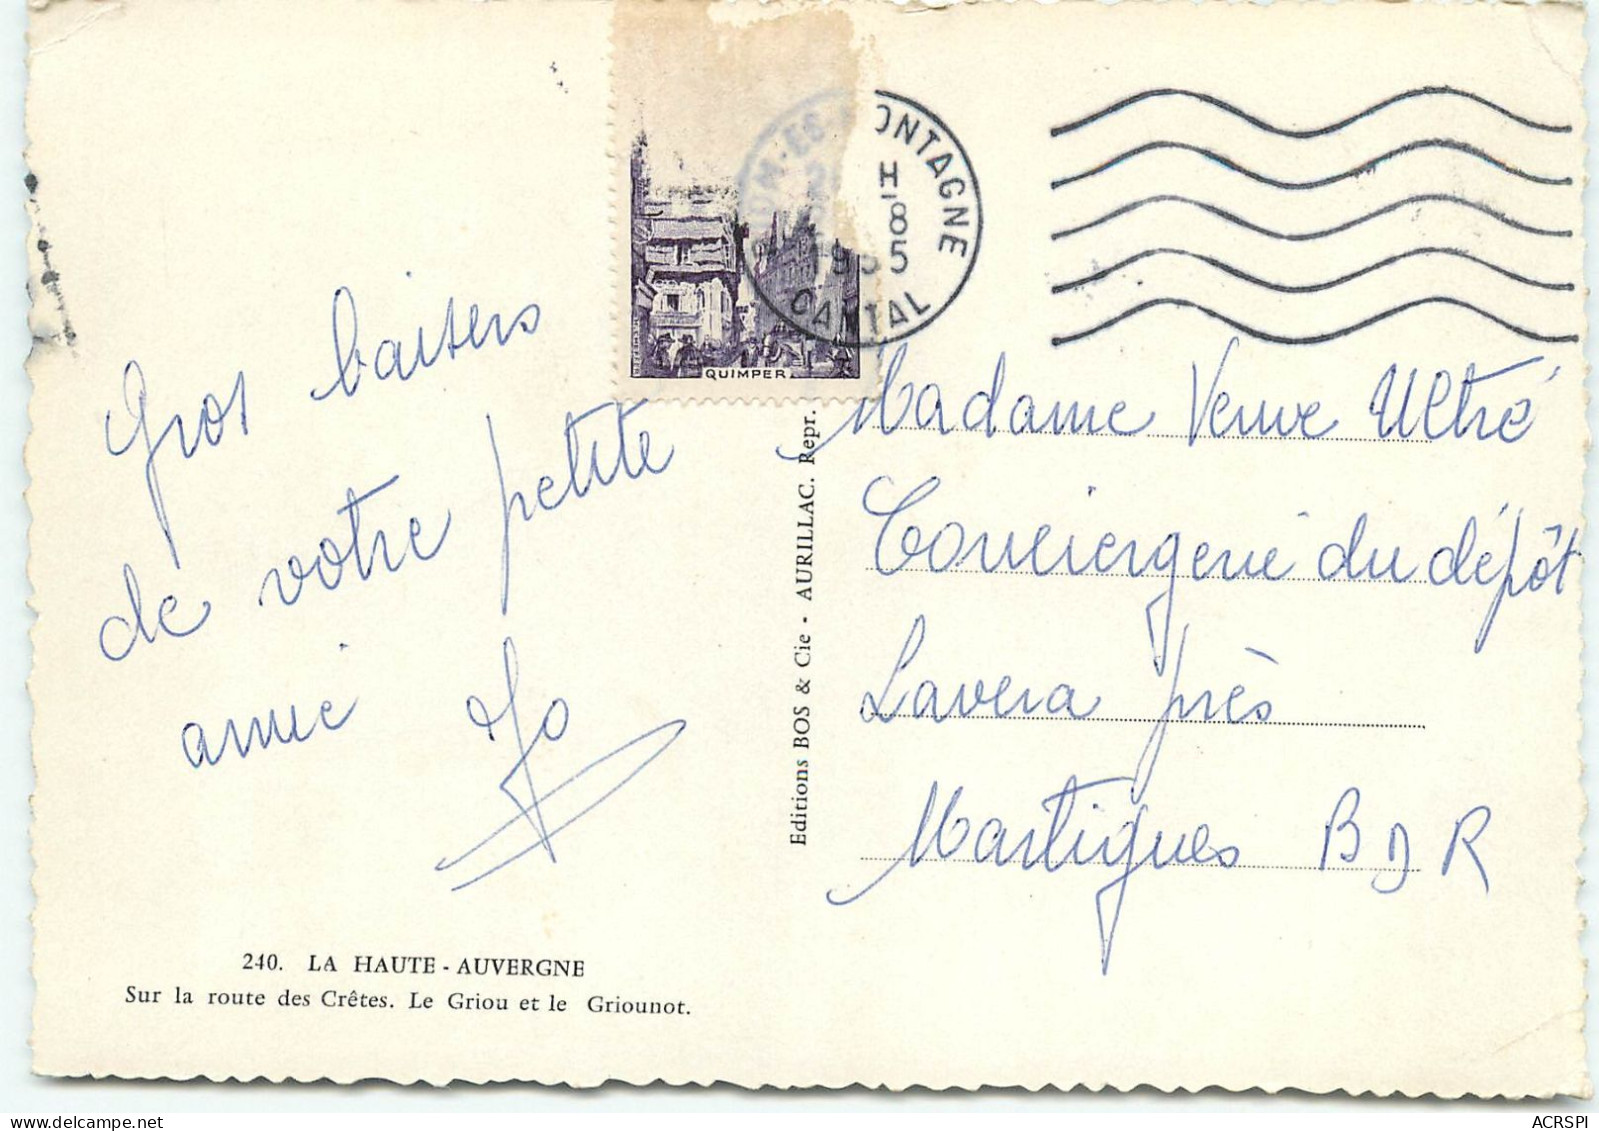 Gros baisers
de votre petite
amie Jo
240. LA HAUTE - AUVERGNE
Sur la route des Crêtes. Le Griou et le Griounot.
QUIMPER
OM-ES-MONTAGNE
H
8
1955
CANTAL
Editions BOS & Cie - AURILLAC. Repr.
Madame Veuve Ultré
Conciergerie du dépôt
Lavera près
Martigues B D R
ACRSPI